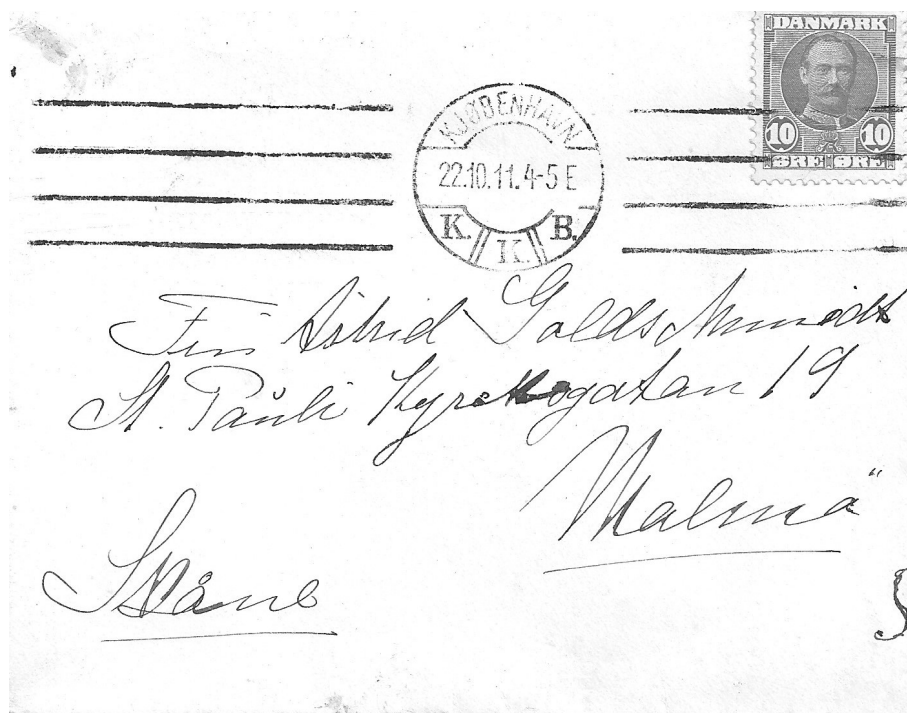 DANMARK
10 10
ØRE ØRE
KJØBENHAVN
22.10.11.4-5 E
K. K. B.
Astrid Goldschmidt
St. Pauli Kyrkogatan 19
Malmö
Skåne